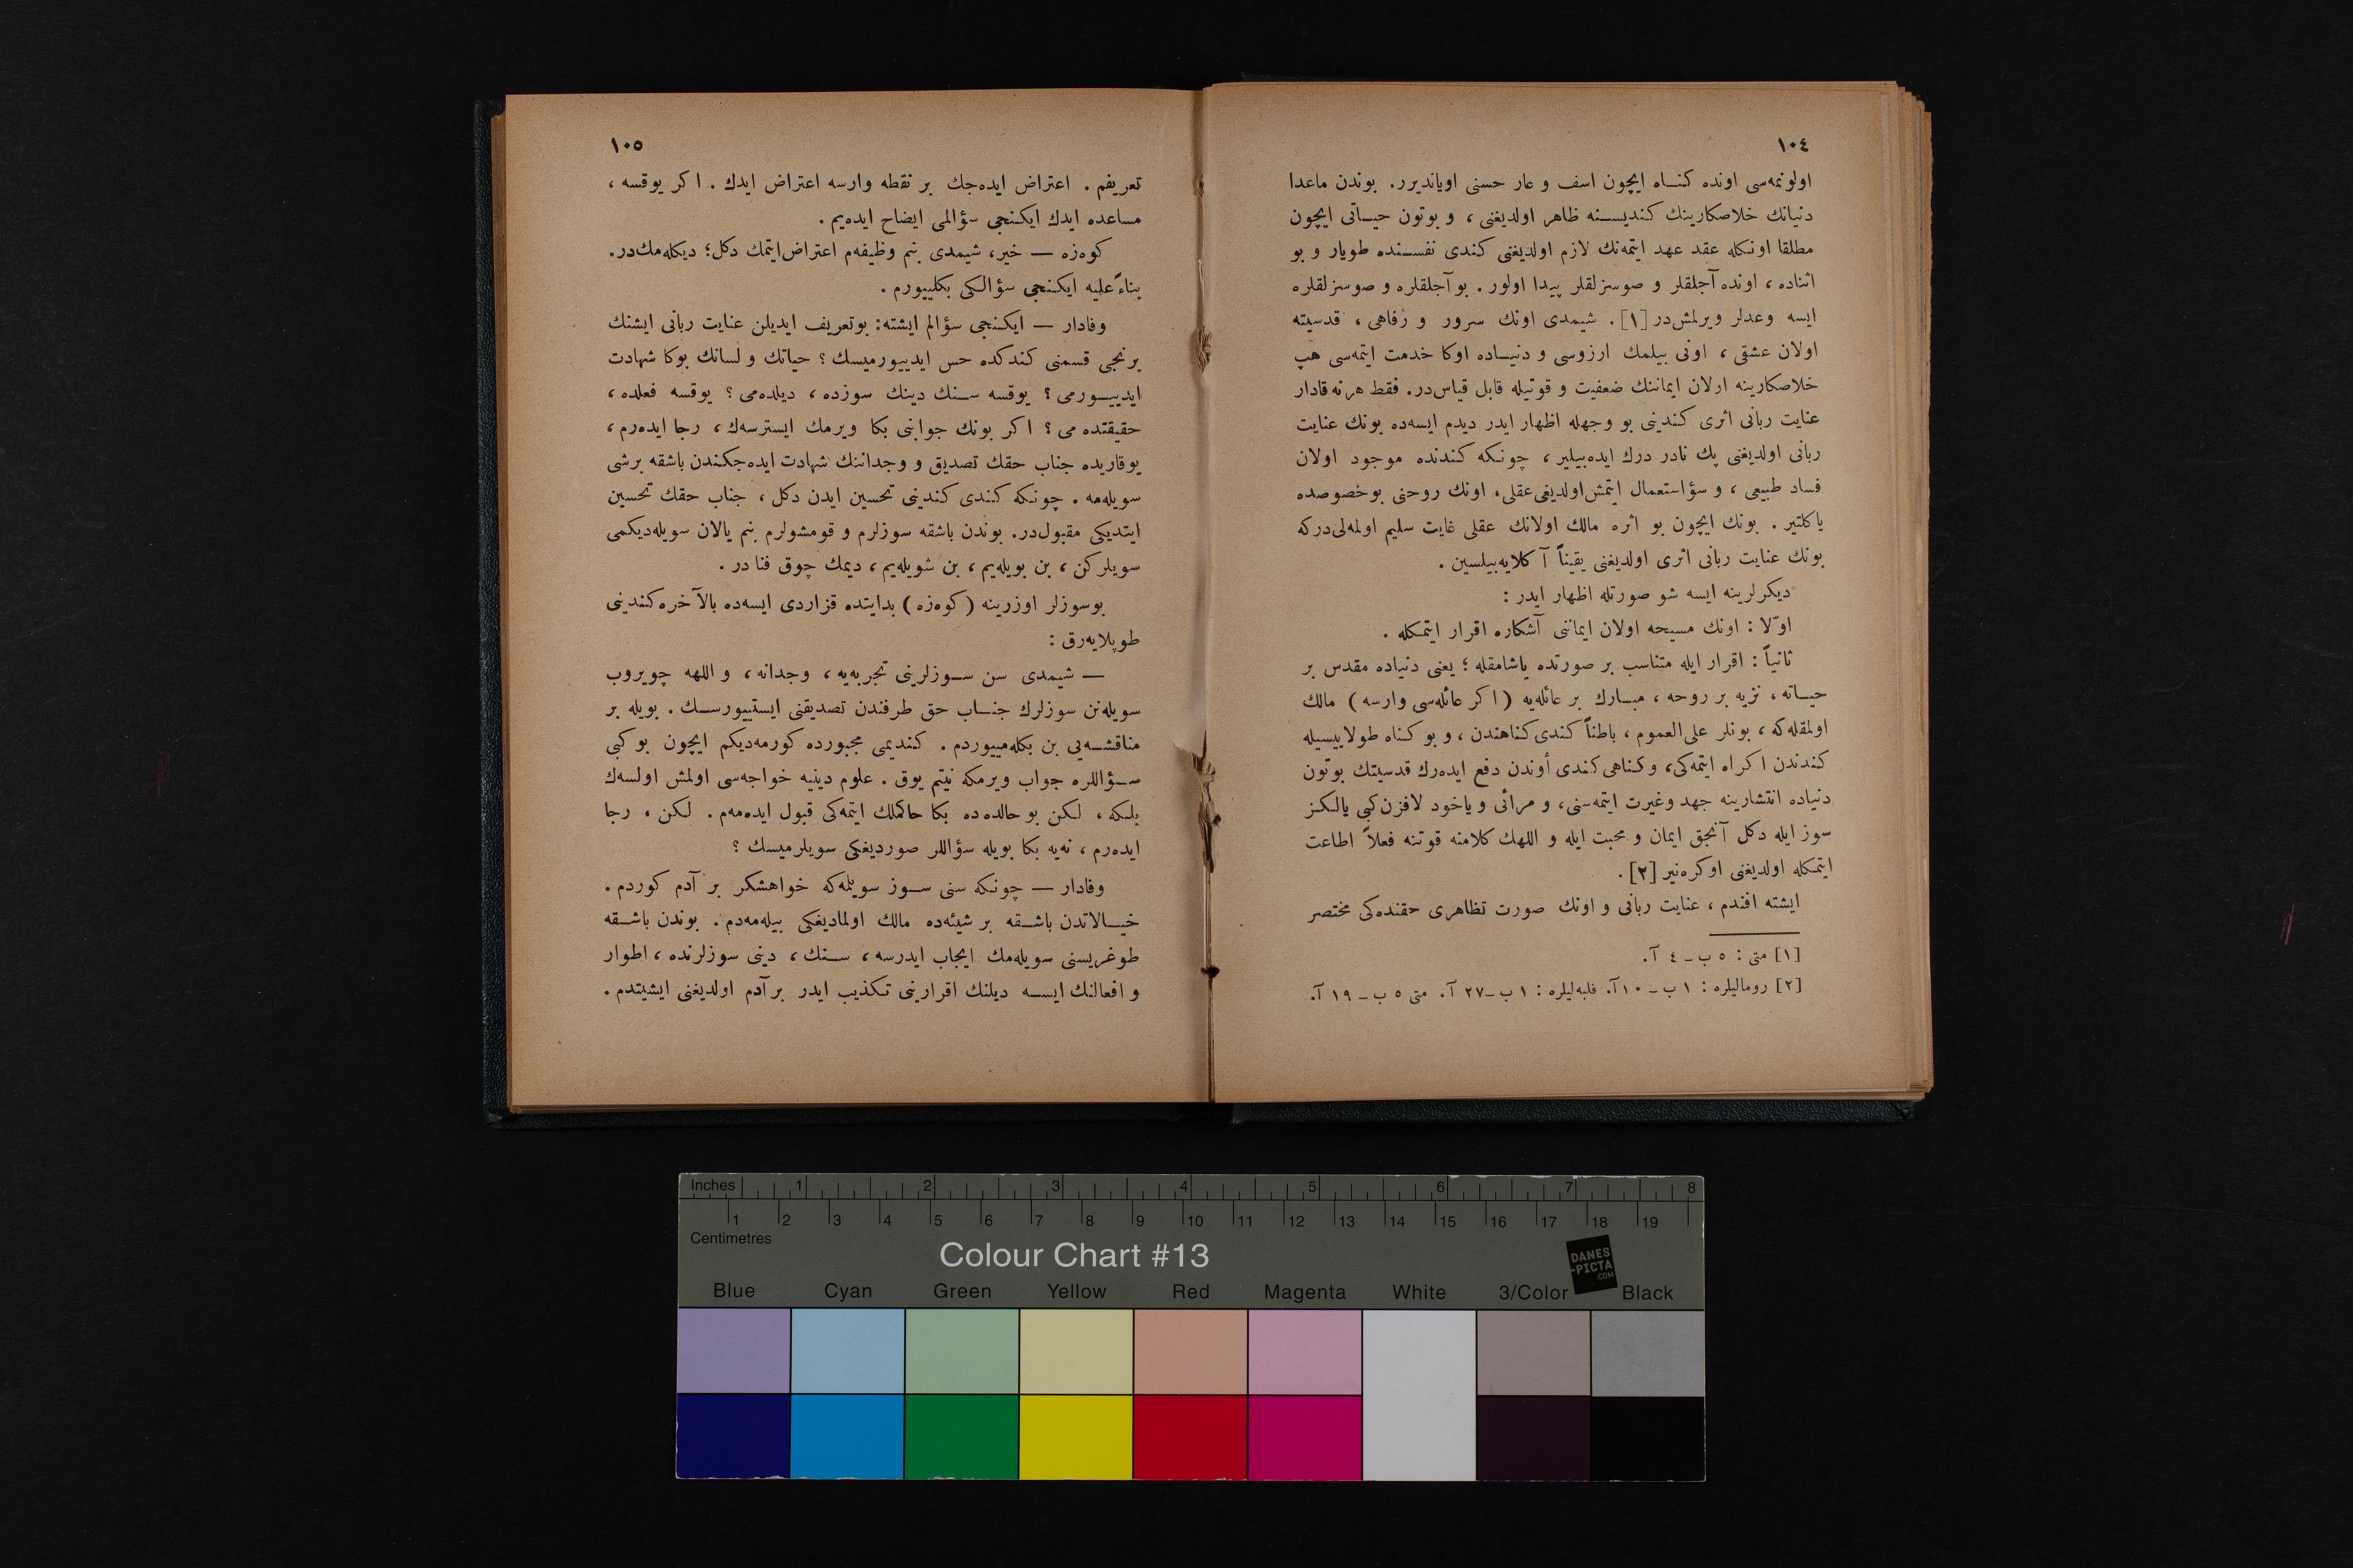 ١٠٤
اولونمه‌سی اونده كنـاه ایچون اسف و عار حسنی اویاندیرر. بوندن ماعدا
دنیانك خلاصكارینك كندیسـنه ظاهر اولدیغنی ، و بوتون حیـاتی ایچون
مطلقا اونكله عقد عهد ایتمه‌نك لازم اولدیغنی كندی نفسـنده طویار و بو
اثناده ، اونده آجلقلر و صوسزلقلر پیدا اولور . بو آجلقلره و صوسزلقلره
ایسه وعدلر ویرلمش‌در [١] . شیمدی اونك سرور و رفاهی ، قدسیته
اولان عشقی ، اونی بیلمك ارزوسی و دنیـاده اوكا خدمت ایتمه‌سی هپ
خلاصكارینه اولان ایماننك ضعفیت و قوتیله قابل قیاس‌در. فقط هر نه قادار
عنایت ربانی اثری كندینی بو وجهله اظهار ایدر دیدم ایسه‌ده بونك عنایت
ربانی اولدیغنی پك نادر درك ایده‌بیلیر ، چونكه كندنده موجود اولان
فساد طبیعی ، و سؤاستعمال ایتمش‌اولدیغی‌عقلی، اونك روحنی بوخصوصده
یاكلتیر . بونك ایچون بو اثره مالك اولانك عقلی غایت سلیم اولمه‌لی‌دركه
بونك عنایت ربانی اثری اولدیغنی یقیناً آ كلایه‌بیلسین .
دیكرلرینه ایسه شو صورتله اظهار ایدر :
اوّلا : اونك مسیحه اولان ایماننی آشكاره اقرار ایتمـكله .
ثانیاً : اقرار ایله متناسب بر صورتده یاشامقله ؛ یعنی دنیاده مقدس بر
حیـاته ، نزیه بر روحه ، مبـارك بر عائله‌یه ( اكر عائله‌سی وارسه ) مالك
اولمقله‌كه ، بونلر علی‌العموم ، باطناً كندی كناهندن ، و بو كناه طولاییسیله
كندندن اكراه ایتمه‌كی، وكناهی كندی أوندن دفع ایده‌رك قدسیتك بوتون
دنیاده انتشارینه جهد وغیرت ایتمه‌سنی، و مرائی ویاخود لافزن كبی یالكز
سوز ایله دكل آنجق ایمان و محبت ایله و اللهك كلامنه قوتنه فعلاً اطاعت
ایتمـكله اولدیغنی اوكره‌نیر [٢] .
ایشته افندم ، عنایت ربانی و اونك صورت تظاهری حقنده‌كی مختصر
[١] متی : ٥ ب ـ ٤ آ.
[٢] رومالیلره : ١ ب ـ ١٠ آ. فلبه‌لیلره : ١ ب ـ ٢٧ آ. متی ٥ ب ـ ١٩ آ.
١٠٥
تعریفم . اعتراض ایده‌جك بر نقطه وارسه اعتراض ایدك . اكر یوقسه ،
مساعده ایدك ایكنجی سؤالمی ایضاح ایده‌یم .
كوه‌زه — خیر، شیمدی بنم وظیفه‌م اعتراض ایتمك دكل؛ دیكله‌مك‌در.
بناءً علیه ایكنجی سؤالكی بكلییورم .
وفادار — ایكنجی سؤالم ایشته: بوتعریف ایدیلن عنایت ربانی ایشنك
برنجی قسمنی كندكده حس ایدییورمیسك ؟ حیاتك و لسانك بوكا شهادت
ایدییـورمی ؟ یوقسه سـنك دینك سوزده ، دیلده‌می ؟ یوقسه فعلده ،
حقیقتده می ؟ اكر بونك جوابنی بكا ویرمك ایسترسه‌ك ، رجا ایده‌رم ،
یوقاریده جناب حقك تصدیق و وجداننك شهادت ایده‌جكندن باشقه برشی
سویله‌مه . چونكه كندی كندینی تحسین ایدن دكل ، جناب حقك تحسین
ایتدیكی مقبول‌در. بوندن باشقه سوزلرم و قومشولرم بنم یالان سویله‌دیكمی
سویلركن ، بن بویله‌یم ، بن شویله‌یم ، دیمك چوق فنا در .
بوسوزلر اوزرینه ( كوه‌زه ) بدایتده قزاردی ایسه‌ده بالآخره كندینی
طوپلایه‌رق :
— شیمدی سن سـوزلرینی تجربه‌یه ، وجدانه ، و اللهه چویروب
سویله‌نن سوزلرك جنـاب حق طرفندن تصدیقنی ایستییورسـك . بویله بر
مناقشـه‌یی بن بكله‌مییوردم . كندیمی مجبورده كورمه‌دیكم ایچون بو كبی
سـؤاللره جواب ویرمكه نیتم یوق . علوم دینیه خواجه‌سی اولمش اولسه‌ك
بلـكه ، لـكن بو حالده ده بكا حاكملك ایتمه‌كی قبول ایده‌مه‌م . لـكن ، رجا
ایده‌رم ، نه‌یه بكا بویله سؤاللر صوردیغكی سویلرمیسك ؟
وفادار — چونكه سنی سـوز سویلمه‌كه خواهشكر بر آدم كوردم .
خیـالاتدن باشـقه بر شیئه‌ده مالك اولمادیغكی بیله‌مه‌دم . بوندن باشـقه
طوغریسنی سویله‌مك ایجاب ایدرسه ، سـنك ، دینی سوزلرنده ، اطوار
و افعالنك ایسـه دیلنك اقرارینی تـكذیب ایدر بر آدم اولدیغنی ایشیتدم .
Inches 1 2 3 4 5 6 7 8
1 2 3 4 5 6 7 8 9 10 11 12 13 14 15 16 17 18 19
Centimetres
Colour Chart #13
DANES
-PICTA
.COM
Blue Cyan Green Yellow Red Magenta White 3/Color Black